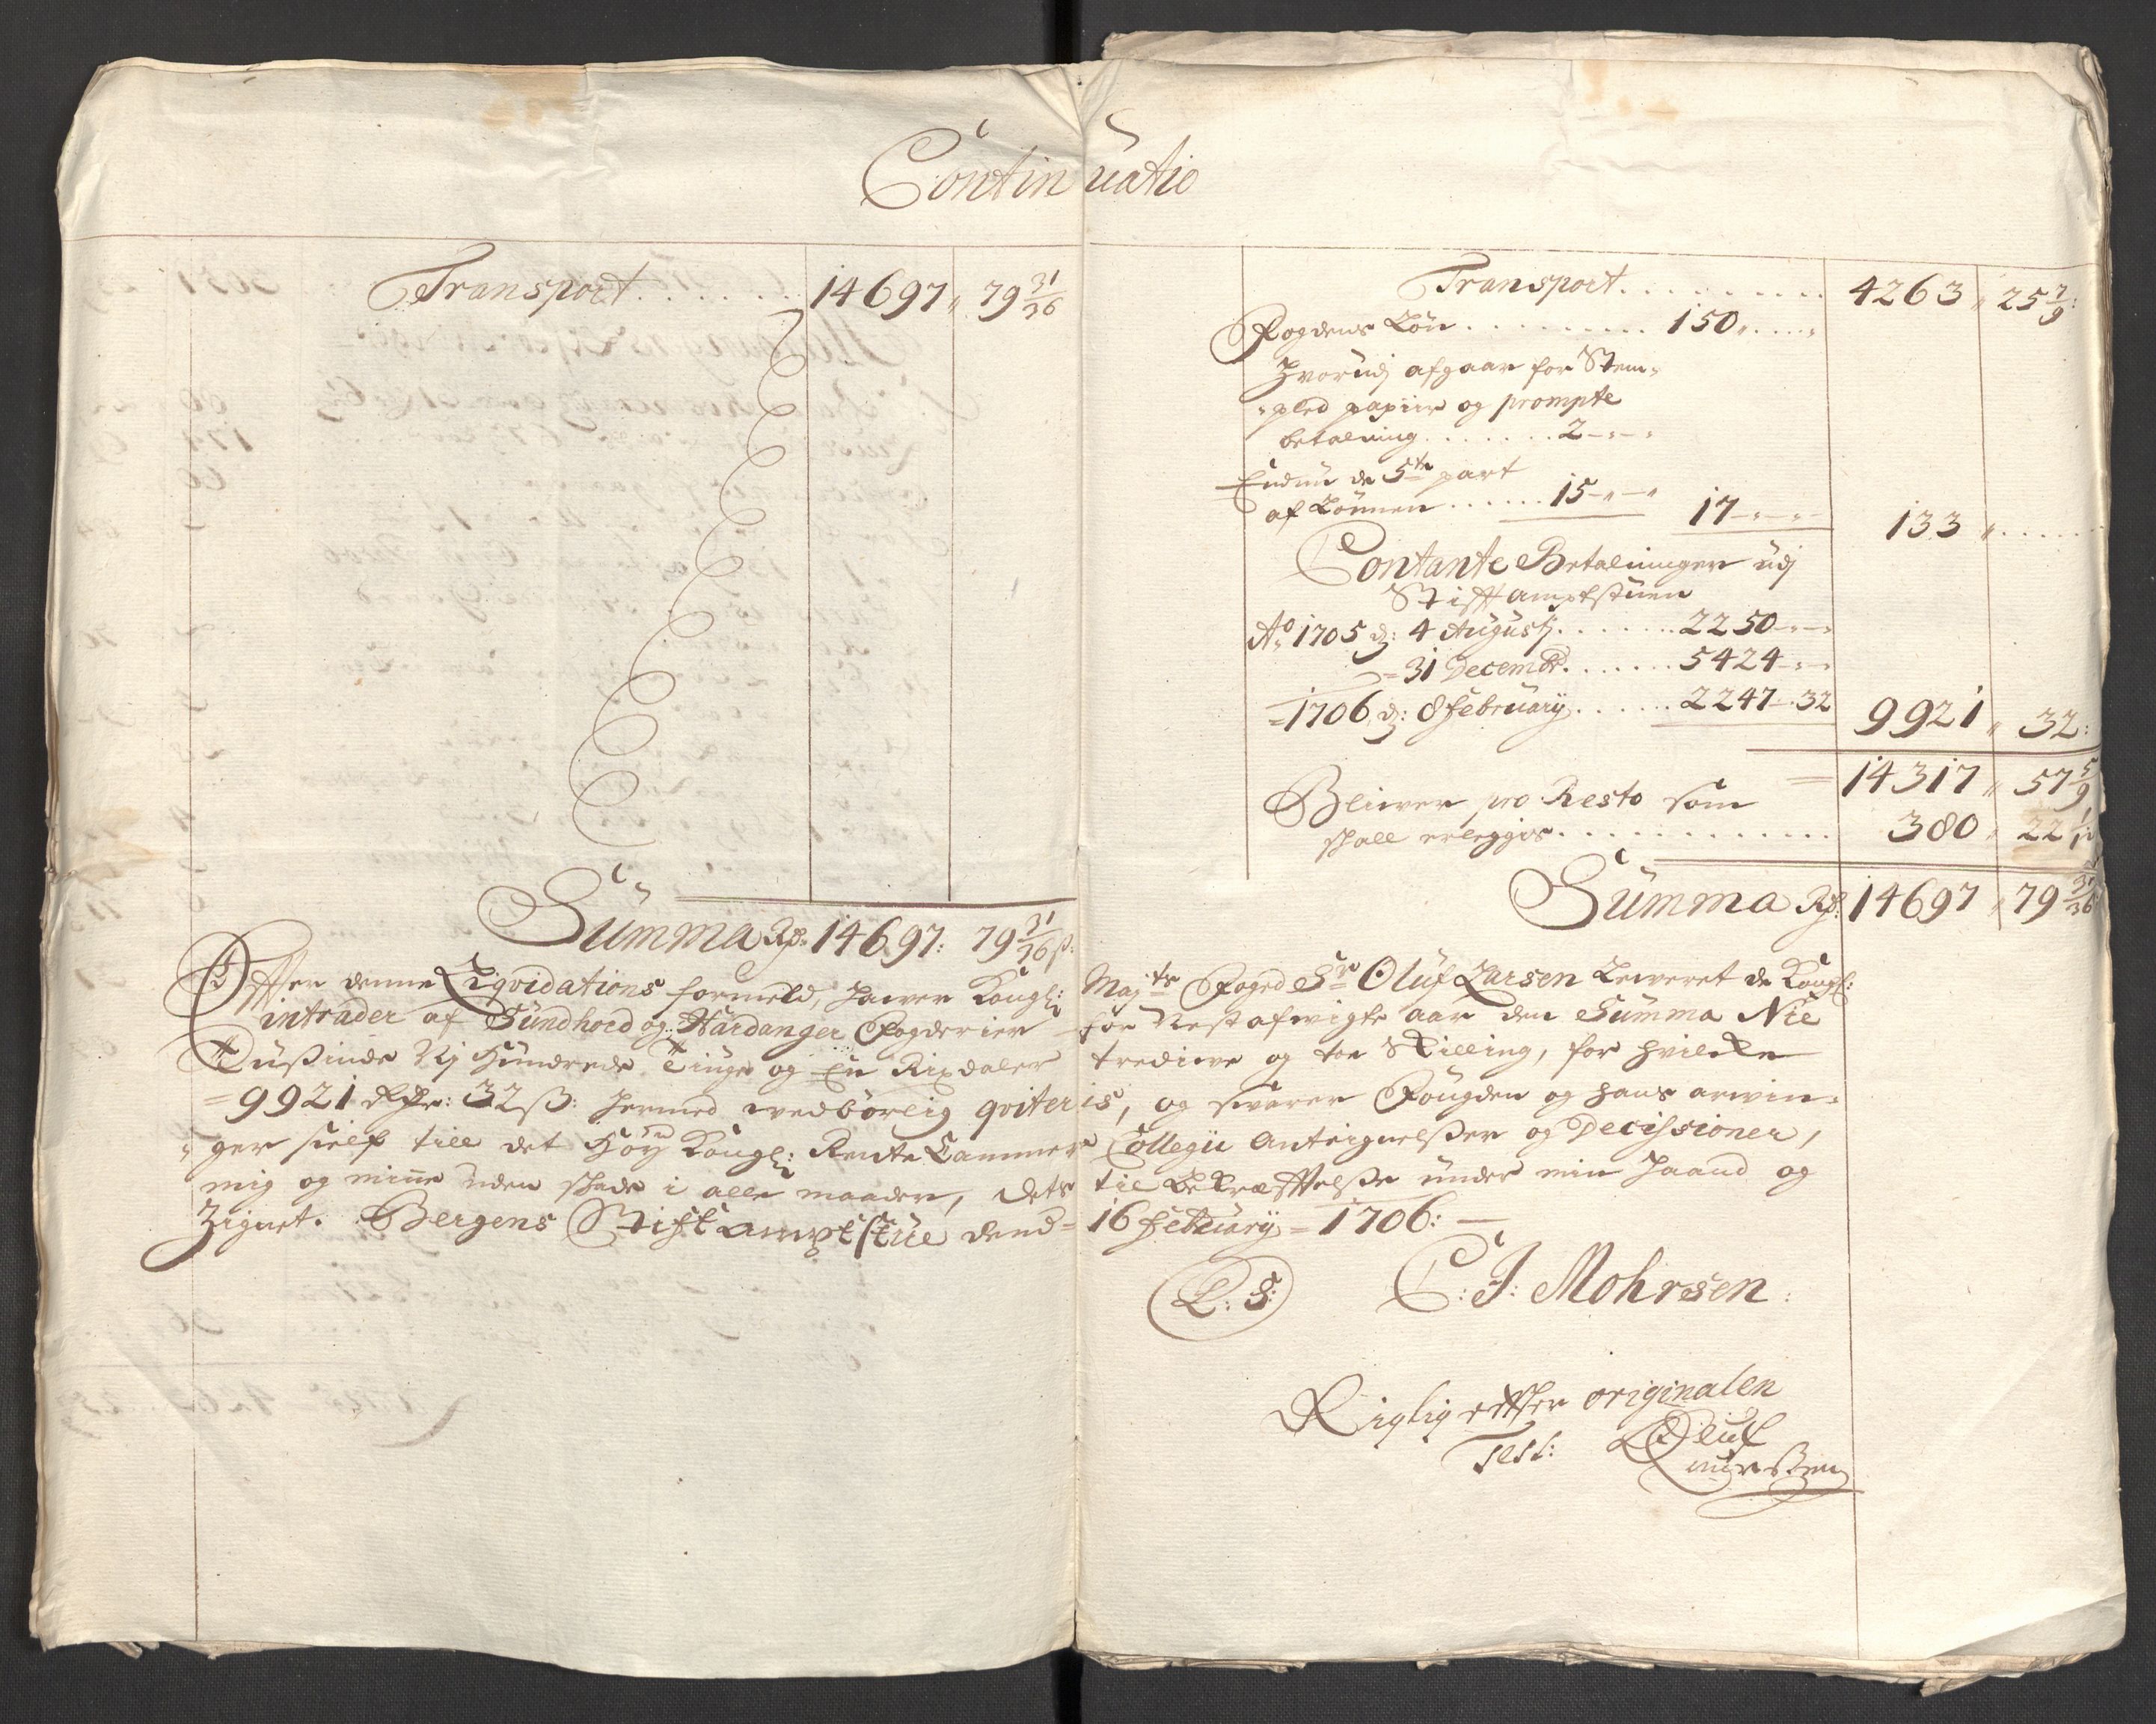 Continuatio
Transport . . . . . . . 14697 „ 79 31/36
Summa Rd: 14697: 79 31/36 ß:
Transport . . . . . . . . . 4263 „ 25 7/9:
Fogdens Løn . . . . . . . . . 150 „ . . . „
Hvorudj afgaar for Stem„
„pled papiir og prompte
betalning . . . . . . . 2 - „ - „
Endnu de 5te part
af Lønnen . . . . . . 15 - „ - „ 17 - „ - „ 133 „ . . . . .
Contante Betalninger udj
Stifftamptstuen
Ao 1705 d: 4 Augustj . . . . . . . 2250 - „ -
= 31 Decembr . . . . . . . 5424 - „ -
= 1706 d: 8 february . . . . . . 2247 - 32 9921 „ 32:
= 14317 „ 57 5/9
Blicver pro Resto som
skall erleggis . . . . . . . . . . . . . 380 „ 22 1/12
Summa Rd: 14697 „ 79 31/36
Effter denne Liqvidations formeld, hawer Kongl: Mayts Foged Sr Oluf Larsen Leweret de Kongl:
intrader af Sundhord og Hardanger Fogderier for Nest afwigte aar den Summa Nie
Tusinde Nj Hundrede Tiuge og En Rixdaler trediwe og toe Skilling, for hvilcke
= 9921 Rdr: 32 ß: hermed wedbørlig qviteris, og swarer Fougden og hans arwin„
„ger sielf till det Høy Kongl: Rente Cammer Collegii Anteignelßer og Decissioner,
mig og mine uden skade i alle maader, dets til Bekræfftelße under min Haand og
Zignet. Bergens Stiftamptstue dend = 16 february = 1706: —
L: S: C: J: Mohrsen:
Rigtig effter originalen
Test: Oluf
Laursen